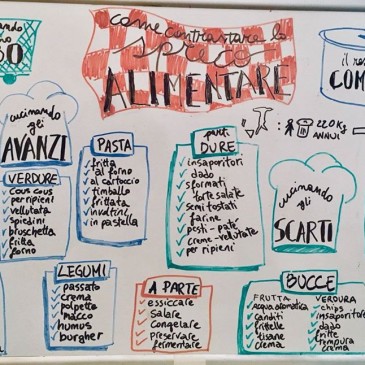 come contrastare lo
spreco
ALIMENTARE
cucinando
gli
AVANZI
PASTA
fritta
al forno
al cartoccio
timballo
frittata
involtini
in pastella
parti
DURE
insaporitori
dado
sformati
torte salate
semi tostati
farine
pesti - paté
creme - vellutate
per ripieni
: 220Kg
ANNUI
cucinando
gli
SCARTI
VERDURE
cous cous
per ripieni
vellutata
spiedini
bruschetta
fritta
forno
LEGUMI
passato
crema
polpetta
macco
humus
burgher
A PARTE
essiccare
salare
congelare
preservare
fermentare
BUCCE
FRUTTA
acqua aromatica
canditi
frittelle
tisane
crema
VERDURA
chips
insaporitore
dado
fritte
tempura
crema